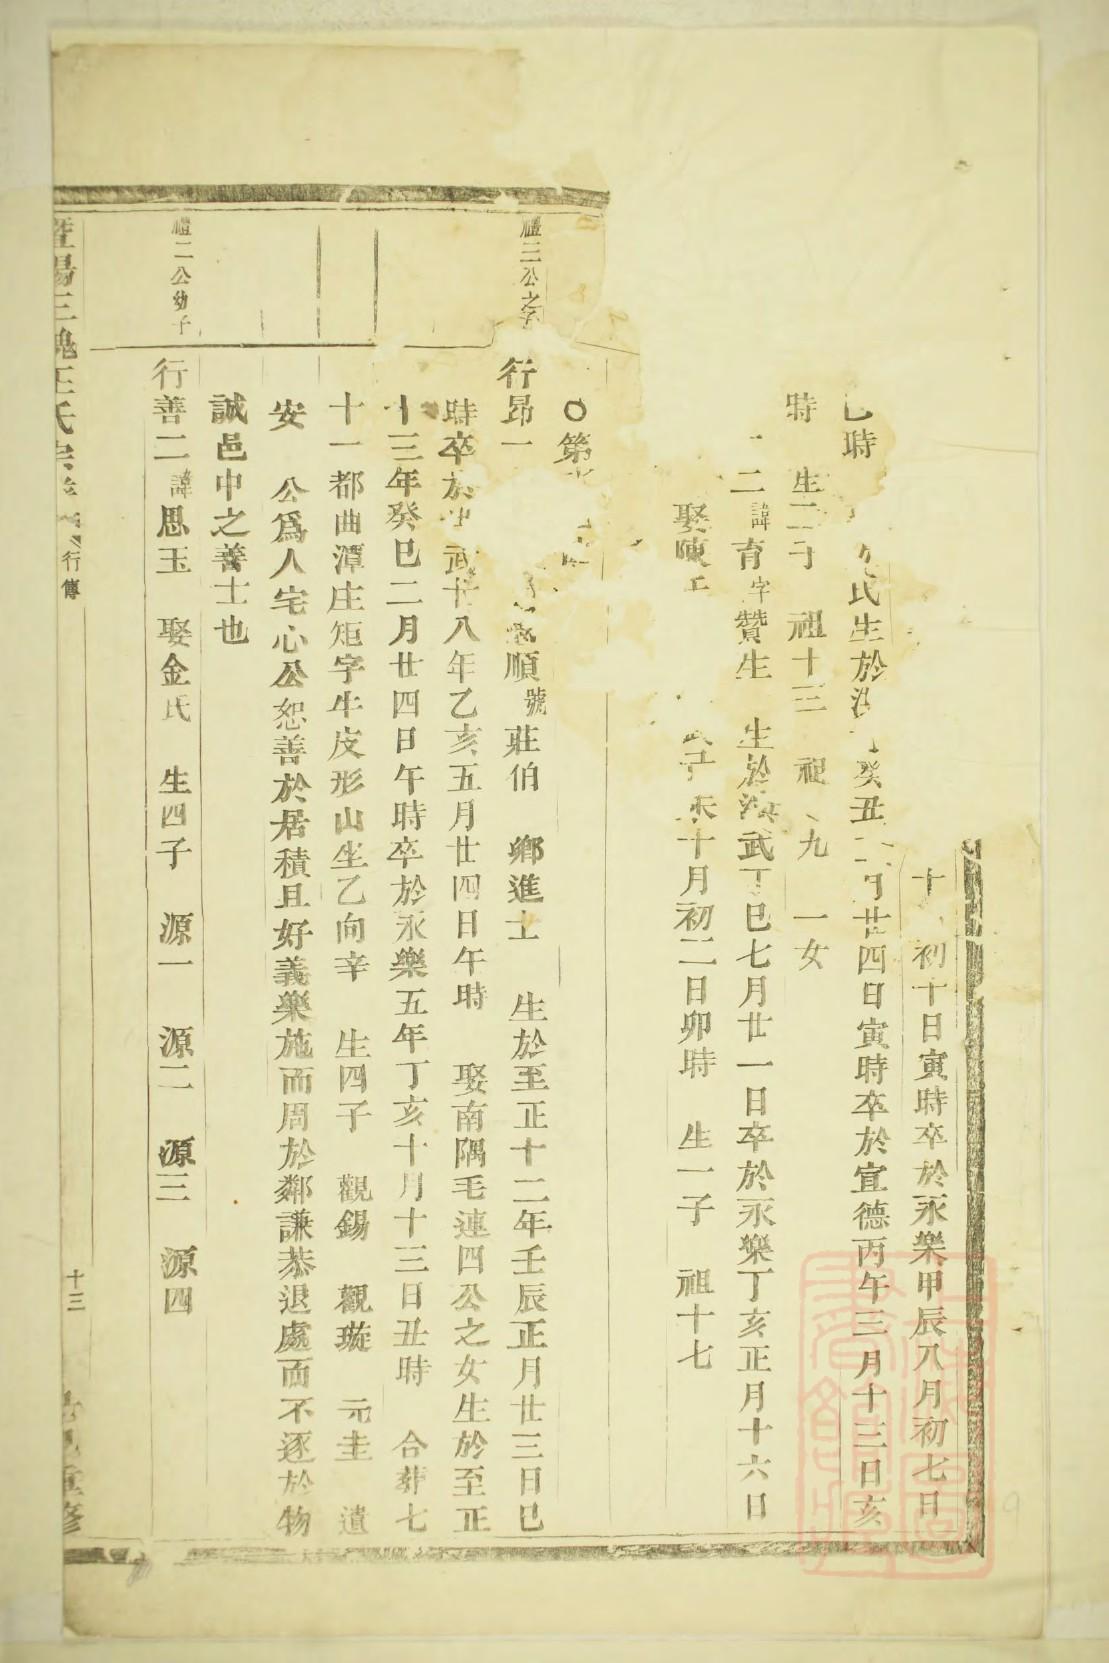 十 初十日寅時卒於永樂甲辰八月初七日
巳時 氏生於洪 癸丑 月廿四日寅時卒於宣德丙午三月十三日亥
時 生二子 祖十三 祖 九 一女
二諱育字贊生 生於洪武丁巳七月廿一日卒於永樂丁亥正月十六日
娶陳 十月初二日卯時 生一子 祖十七
○第
禮三公之子
行昂一 順號莊伯 鄉進士 生於至正十二年壬辰正月廿三日巳
時卒於 武十八年乙亥五月廿四日午時 娶南隅毛連四公之女生於至正
十三年癸巳二月廿四日午時卒於永樂五年丁亥十月十三日丑時 合葬七
十一都曲潭庄矩字牛皮形山坐乙向辛 生四子 觀錫 觀璇 元圭 遺
安 公爲人宅心公恕善於居積且好義樂施而周於鄰謙恭退處而不逐於物
誠邑中之善士也
禮二公幼子
行善二諱思玉 娶金氏 生四子 源一 源二 源三 源四
暨陽三槐王氏宗 行傳 十三 重修